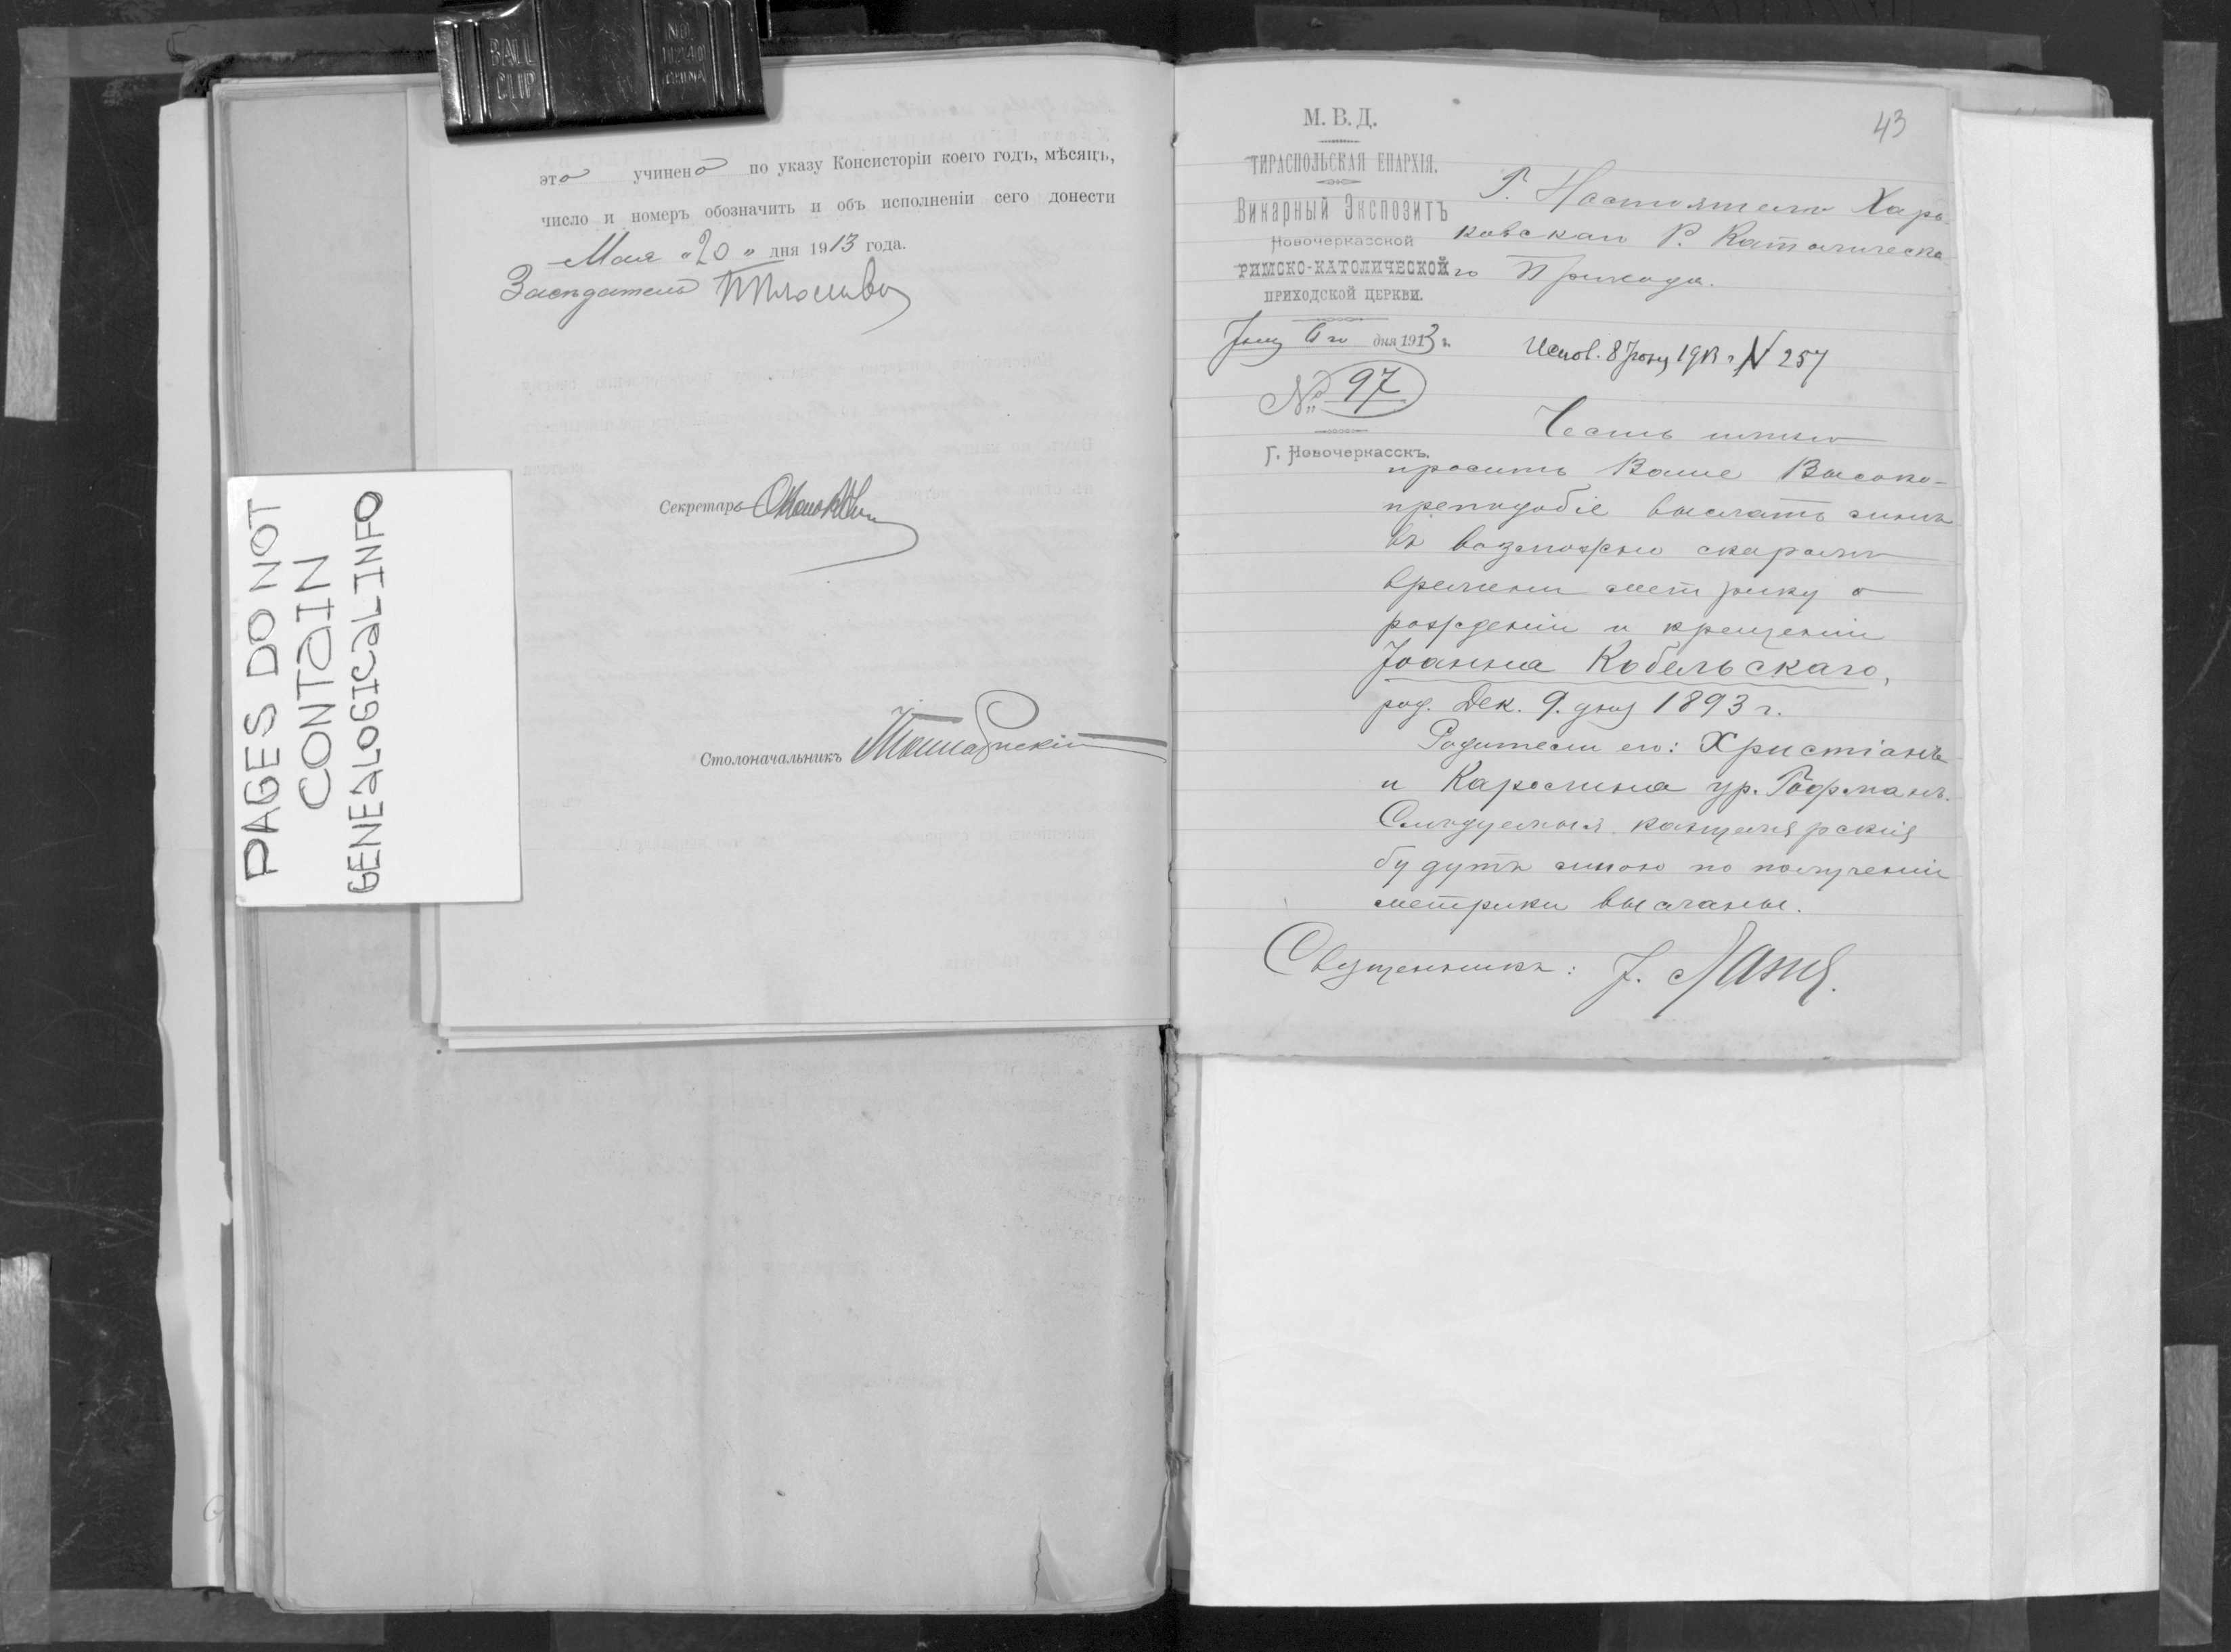 BALL
CLIP
NO.
CHINA
PAGES DO NOT
CONTAIN
GENEALOGICAL INFO
это учинено по указу Консисторіи коего годъ, мѣсяцъ,
число и номеръ обозначить и объ исполненіи сего донести
Мая „20„ дня 1913 года.
Засѣдатель
Секретарь
Столоначальникъ
43
М. В. Д.
ТИРАСПОЛЬСКАЯ ЕПАРХІЯ.
Викарный Экспозитъ
Новочеркасской
РИМСКО-КАТОЛИЧЕСКОЙ
ПРИХОДСКОЙ ЦЕРКВИ.
Іюня 6го дня 1913 г.
№ 97
Г. Новочеркасскъ.
Г. Настоятелю Харь
ковскаго Р. Католическа
го Прихода.
Испол. 8 Іюня 1913 г. N 257
Честь имѣю
просить Ваше Высоко-
преподобіе выслать мнѣ
въ возможно скоромъ
времени метрику о
рожденіи и крещеніи
Іоанна Кобельскаго,
род. Дек. 9. дня 1893 г.
Родители его: Христіанъ
и Каролина ур. Гофманъ.
Слѣдуемыя канцелярскія
будутъ мною по полученіи
метрики высланы.
Священникъ: І.